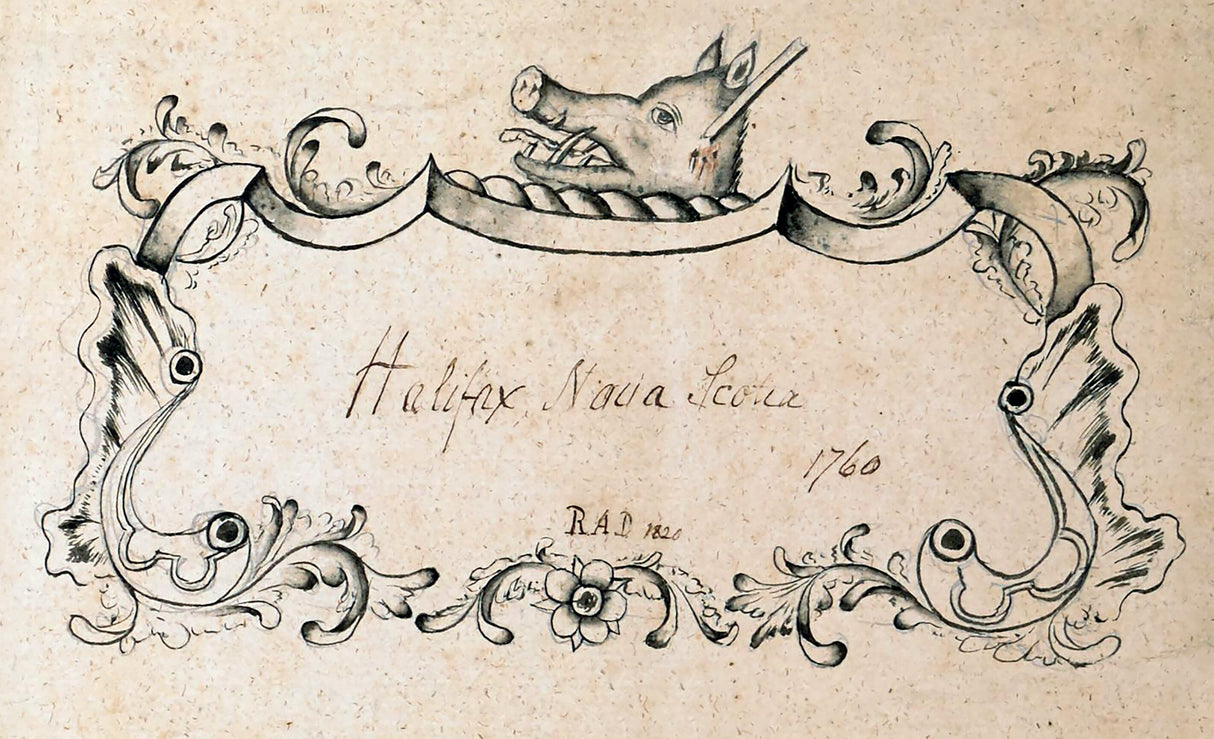 Halifax Nova Scotia
1760
R.A.D 1820